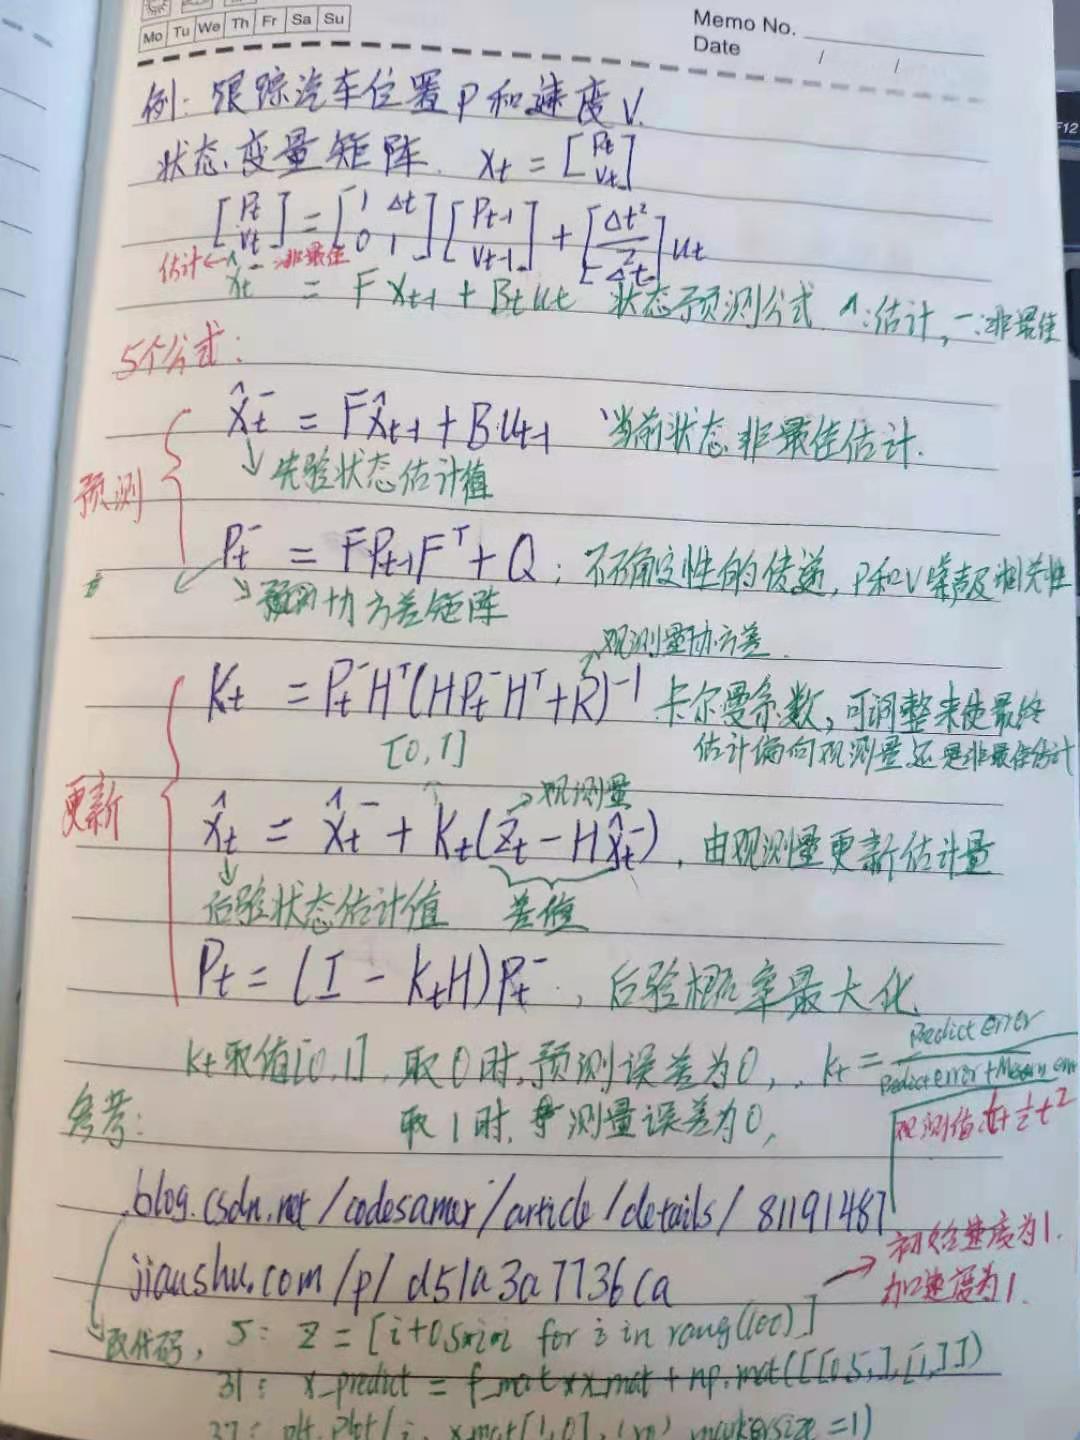 Mo Tu We Th Fr Sa Su
Memo No.
Date / /
例: 跟踪汽车位置P和速度V.
状态变量矩阵. Xt = [Pt Vt]
[Pt Vt] = [1 Δt 0 1] [Pt-1 Vt-1] + [Δt²/2 Δt] ut
估计← ^ - :非最佳
Xt = F Xt-1 + Bt ut 状态预测公式 ^:估计, -:非最佳
5个公式:
预测
X̂t⁻ = FX̂t-1 + But-1 当前状态非最佳估计.
↘ 先验状态估计值
Pt⁻ = FPt-1Fᵀ + Q ; 不确定性的传递, P和V噪声及相关性
↘ 预测协方差矩阵
观测量协方差.
更新
Kt = Pt⁻Hᵀ(HPt⁻Hᵀ+R)⁻¹ 卡尔曼系数, 可调整来使最终
[0, 1] 估计偏向观测量还是非最佳估计
→观测量
X̂t = X̂t⁻ + Kt(Zt - HX̂t⁻), 由观测量更新估计量
后验状态估计值 差值
Pt = (I - KtH)Pt⁻, 后验概率最大化
Kt取值[0,1], 取0时, 预测误差为0, Kt = Predict error / Predict error +
参考: 取1时, 测量误差为0,
观测值: t+½t²
blog.csdn.net/codesamer/article/details/81191487
→ 初始速度为1.
加速度为1.
jianshu.com/p/d51a3a7736ca
取代码, 5: Z = [i+0.5*i*i for i in rang(100)]
31: x_predict = f_mat*x_mat + np.mat([[0.5,],[1,]])
37: plt.plot(i, x_mat[1,0], markersize =1)